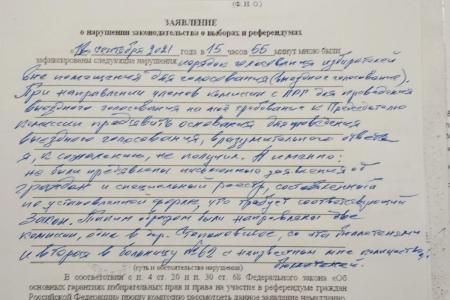 (Ф И О)
ЗАЯВЛЕНИЕ
о нарушении законодательства о выборах и референдумах
«18 сентября 2021 года в 15 часов 55 минут мною были
зафиксированы следующие нарушения порядка голосования избирателей
вне помещения для голосования (выездное голосование).
При направлении членов комиссии с ПРГ для проведения
выездного голосования на моё требование к Председателю
комиссии предъявить основания для проведения
выездного голосования, вразумительного ответа
я, к сожалению, не получил. А именно:
не были предъявлены письменного заявления от
граждан и специальный реестр, составленный
по установленной форме, что требует соответствующий
Закон. Таким образом были направлены две
комиссии, одна в пр. со ста бюллетенями
и вторая в больницу №62 с неизвестным мне количеством
бюллетеней.
(суть и обстоятельства нарушения)
В соответствии с п. 4 ст. 20 и ст. 64 Федерального закона «Об
основных гарантиях избирательных прав и права на участие в референдуме граждан
Российской Федерации» прошу комиссию рассмотреть данное заявление немедленно,